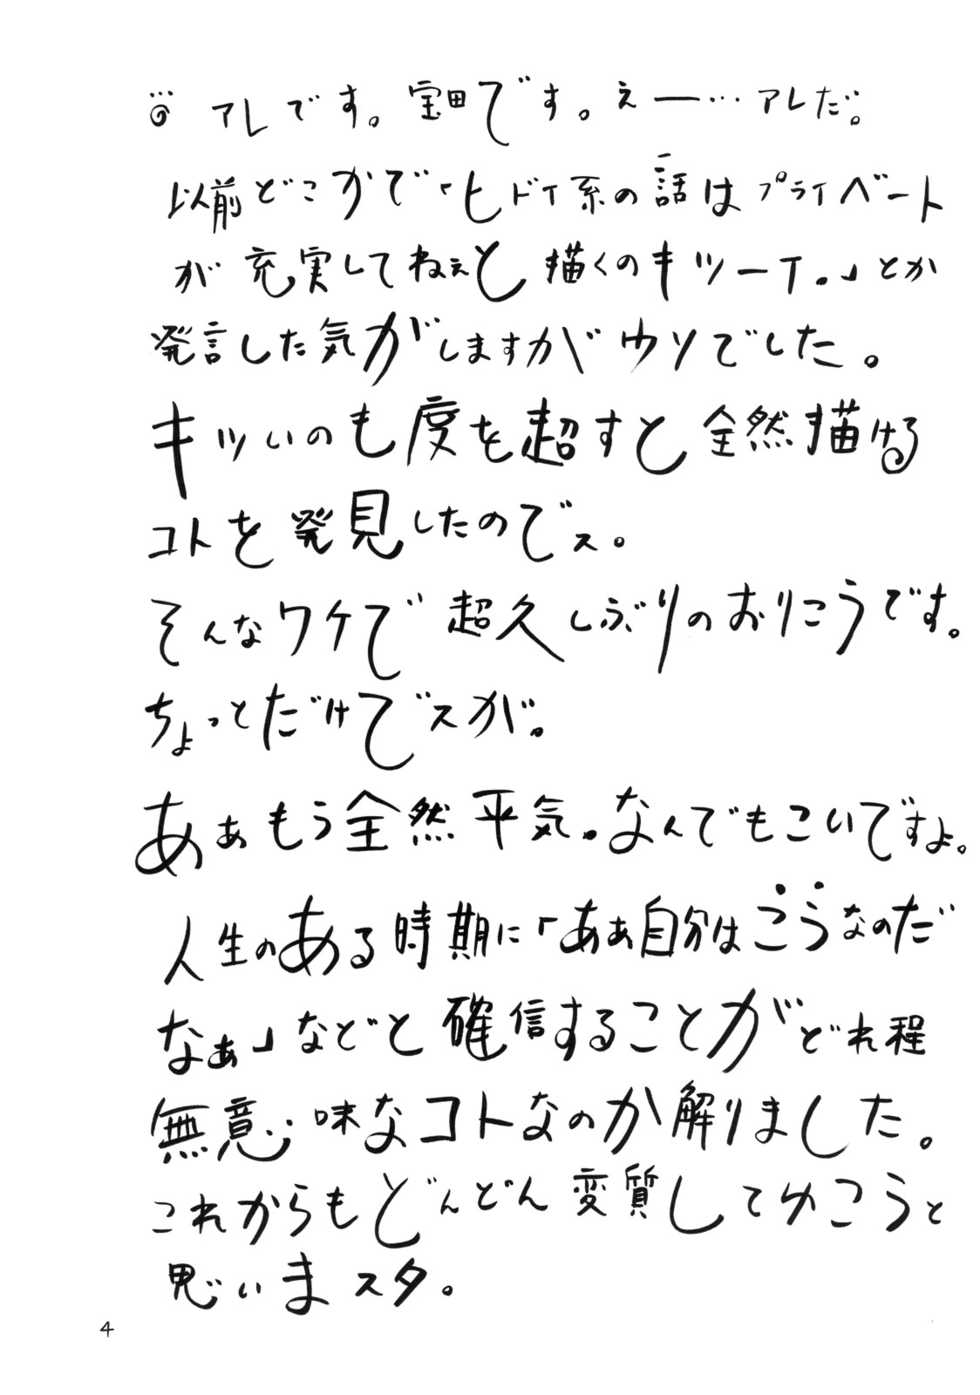 アレです。宝田です。えー…アレだ。
以前どこかで「ヒドイ系の話はプライベート
が充実してねぇと描くのキツーT。」とか
発言した気がしますがウソでした。
キツいのも度を超すと全然描ける
コトを発見したのでス。
そんなワケで超久しぶりのおりこうです。
ちょっとだけでスが。
あぁもう全然平気。なんでもこいですよ。
人生のある時期に「あぁ自分はこうなのだ
なぁ」などと確信することがどれ程
無意味なコトなのか解りました。
これからもどんどん変質してゆこうと
思いまスタ。
4